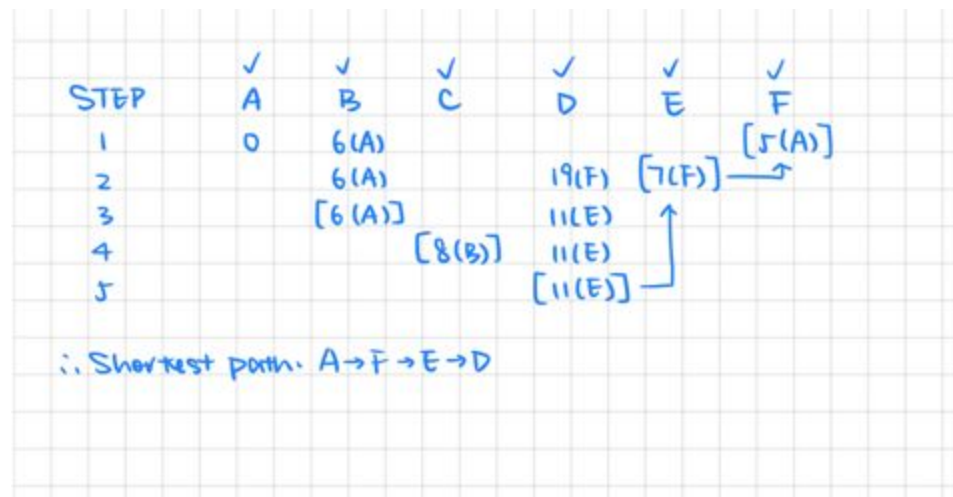 ✓ ✓ ✓ ✓ ✓ ✓
STEP A B C D E F
1 0 6(A) [5(A)]
2 6(A) 19(F) [7(F)]
3 [6(A)] 11(E)
4 [8(B)] 11(E)
5 [11(E)]
∴ Shortest path. A→F→E→D